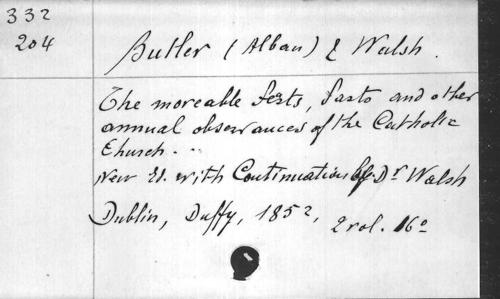 332
204
Butler (Alban) & Walsh.
The moveable fests, fasts and other
annual observances of the Catholic
Church...
New Ed. with Continuation by Dr Walsh
Dublin, Duffy, 1852, 2 vol. 16o